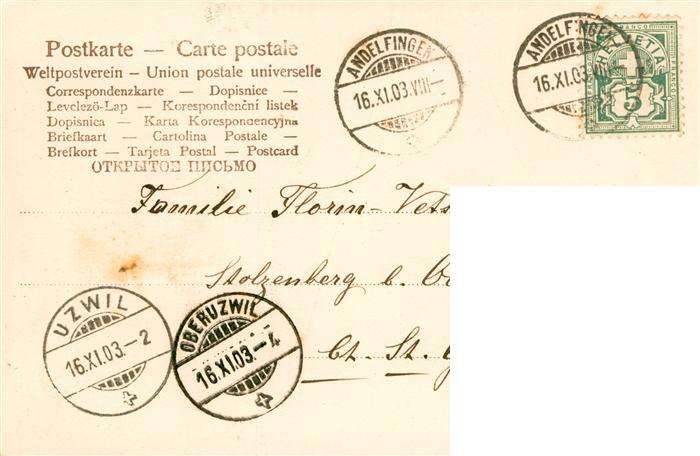 Postkarte — Carte postale
Weltpostverein – Union postale universelle
Correspondenzkarte — Dopisnice —
Levelező-Lap — Korespondenční listek
Dopisnica — Karta Korespondencyjna
Briefkaart — Cartolina Postale —
Brefkort — Tarjeta Postal — Postcard
ОТКРЫТОЕ ПИСЬМО
ANDELFINGEN
16.XI.03.VIII—
ANDELFINGEN
16.XI.03.VIII
FRANCO
HELVETIA
5
Familie Florin-Vets
Stolzenberg b.
Ct. St.
UZWIL
16.XI.03.–2
OBERUZWIL
16.XI.03.–4